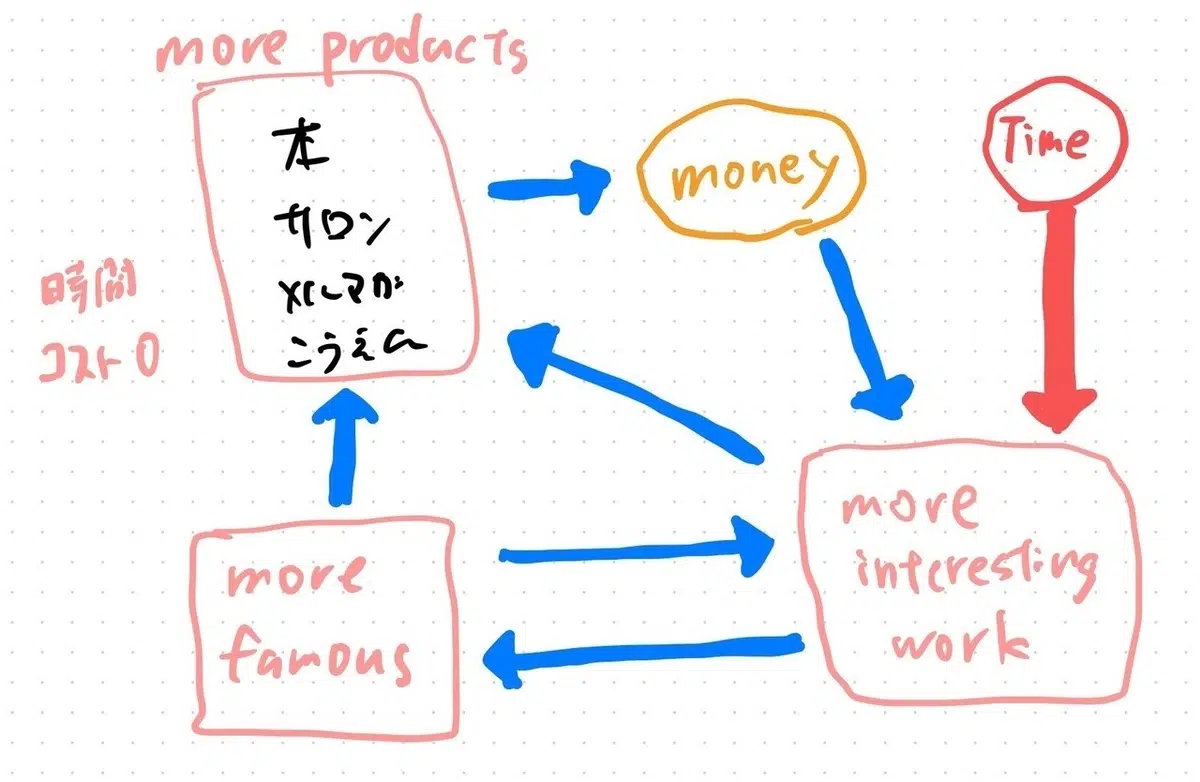 more products
本
サロン
メルマガ
こうえん
時間
コスト0
money
Time
more
famous
more
interesting
work